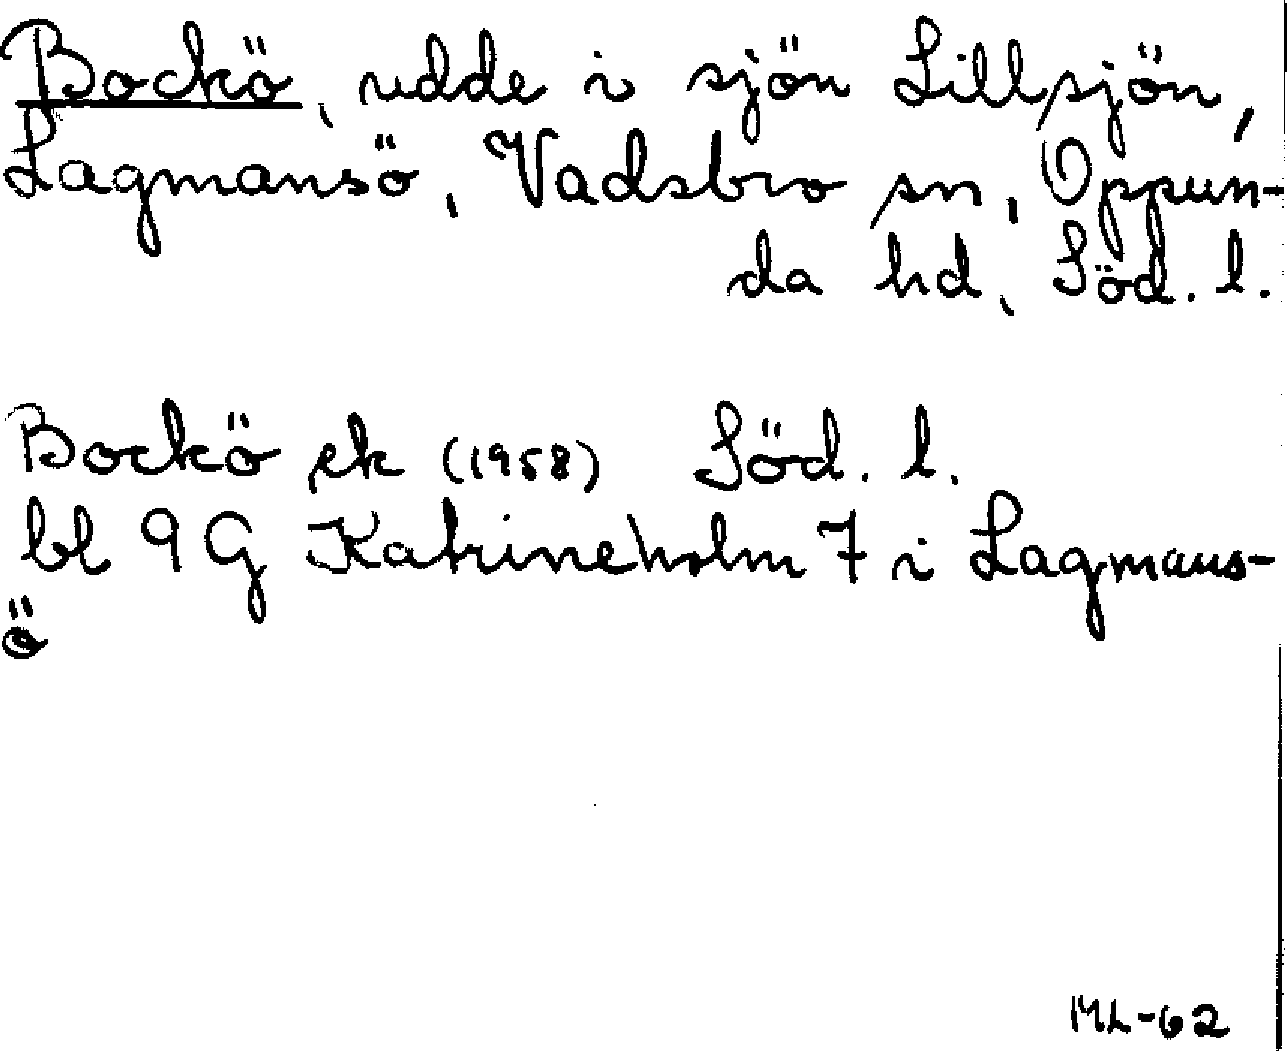 Bockö, udde i sjön Lillsjön,
Lagmansö, Vadsbro sn, Oppun-
da hd, Söd. l.
Bockö ek (1958) Söd. l.
bl 9G Katrineholm 7 i Lagmans-
ö
ML-62